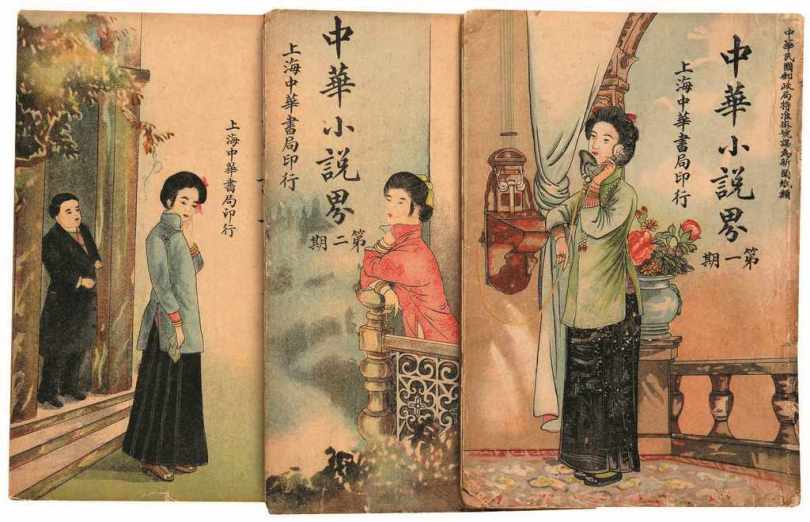 中華民國郵政局特准掛號認為新聞紙類
中華小說界
上海中華書局印行
第一期
中華小說界
上海中華書局印行
第二期
上海中華書局印行